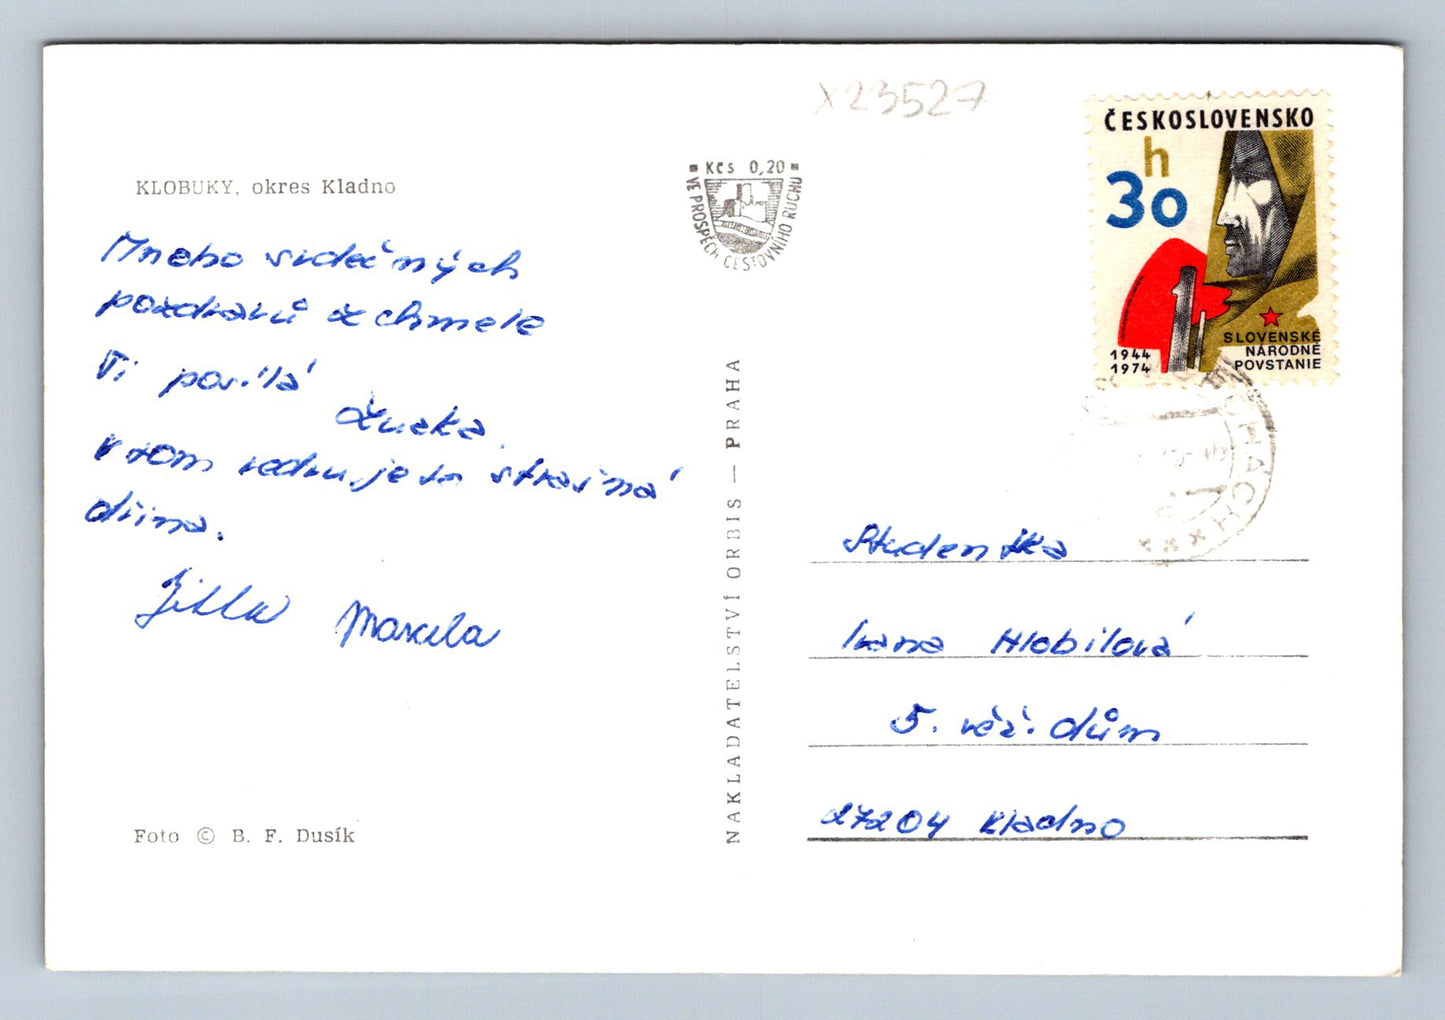 x23527
ČESKOSLOVENSKO
30 h
1944
1974
SLOVENSKÉ
NÁRODNÉ
POVSTANIE
Kčs 0,20
VE PROSPĚCH CESTOVNÍHO RUCHU
KLOBUKY, okres Kladno
Mnoho srdečných
pozdravů z chmele
Ti posílá
Zuzka.
V tom vedru, je to strašná
dřina.
Jitka Marcela
Foto © B. F. Dusík
NAKLADATELSTVÍ ORBIS — PRAHA
Studentka
Ivana Hlobilová
5. věž. dům
27204 Kladno